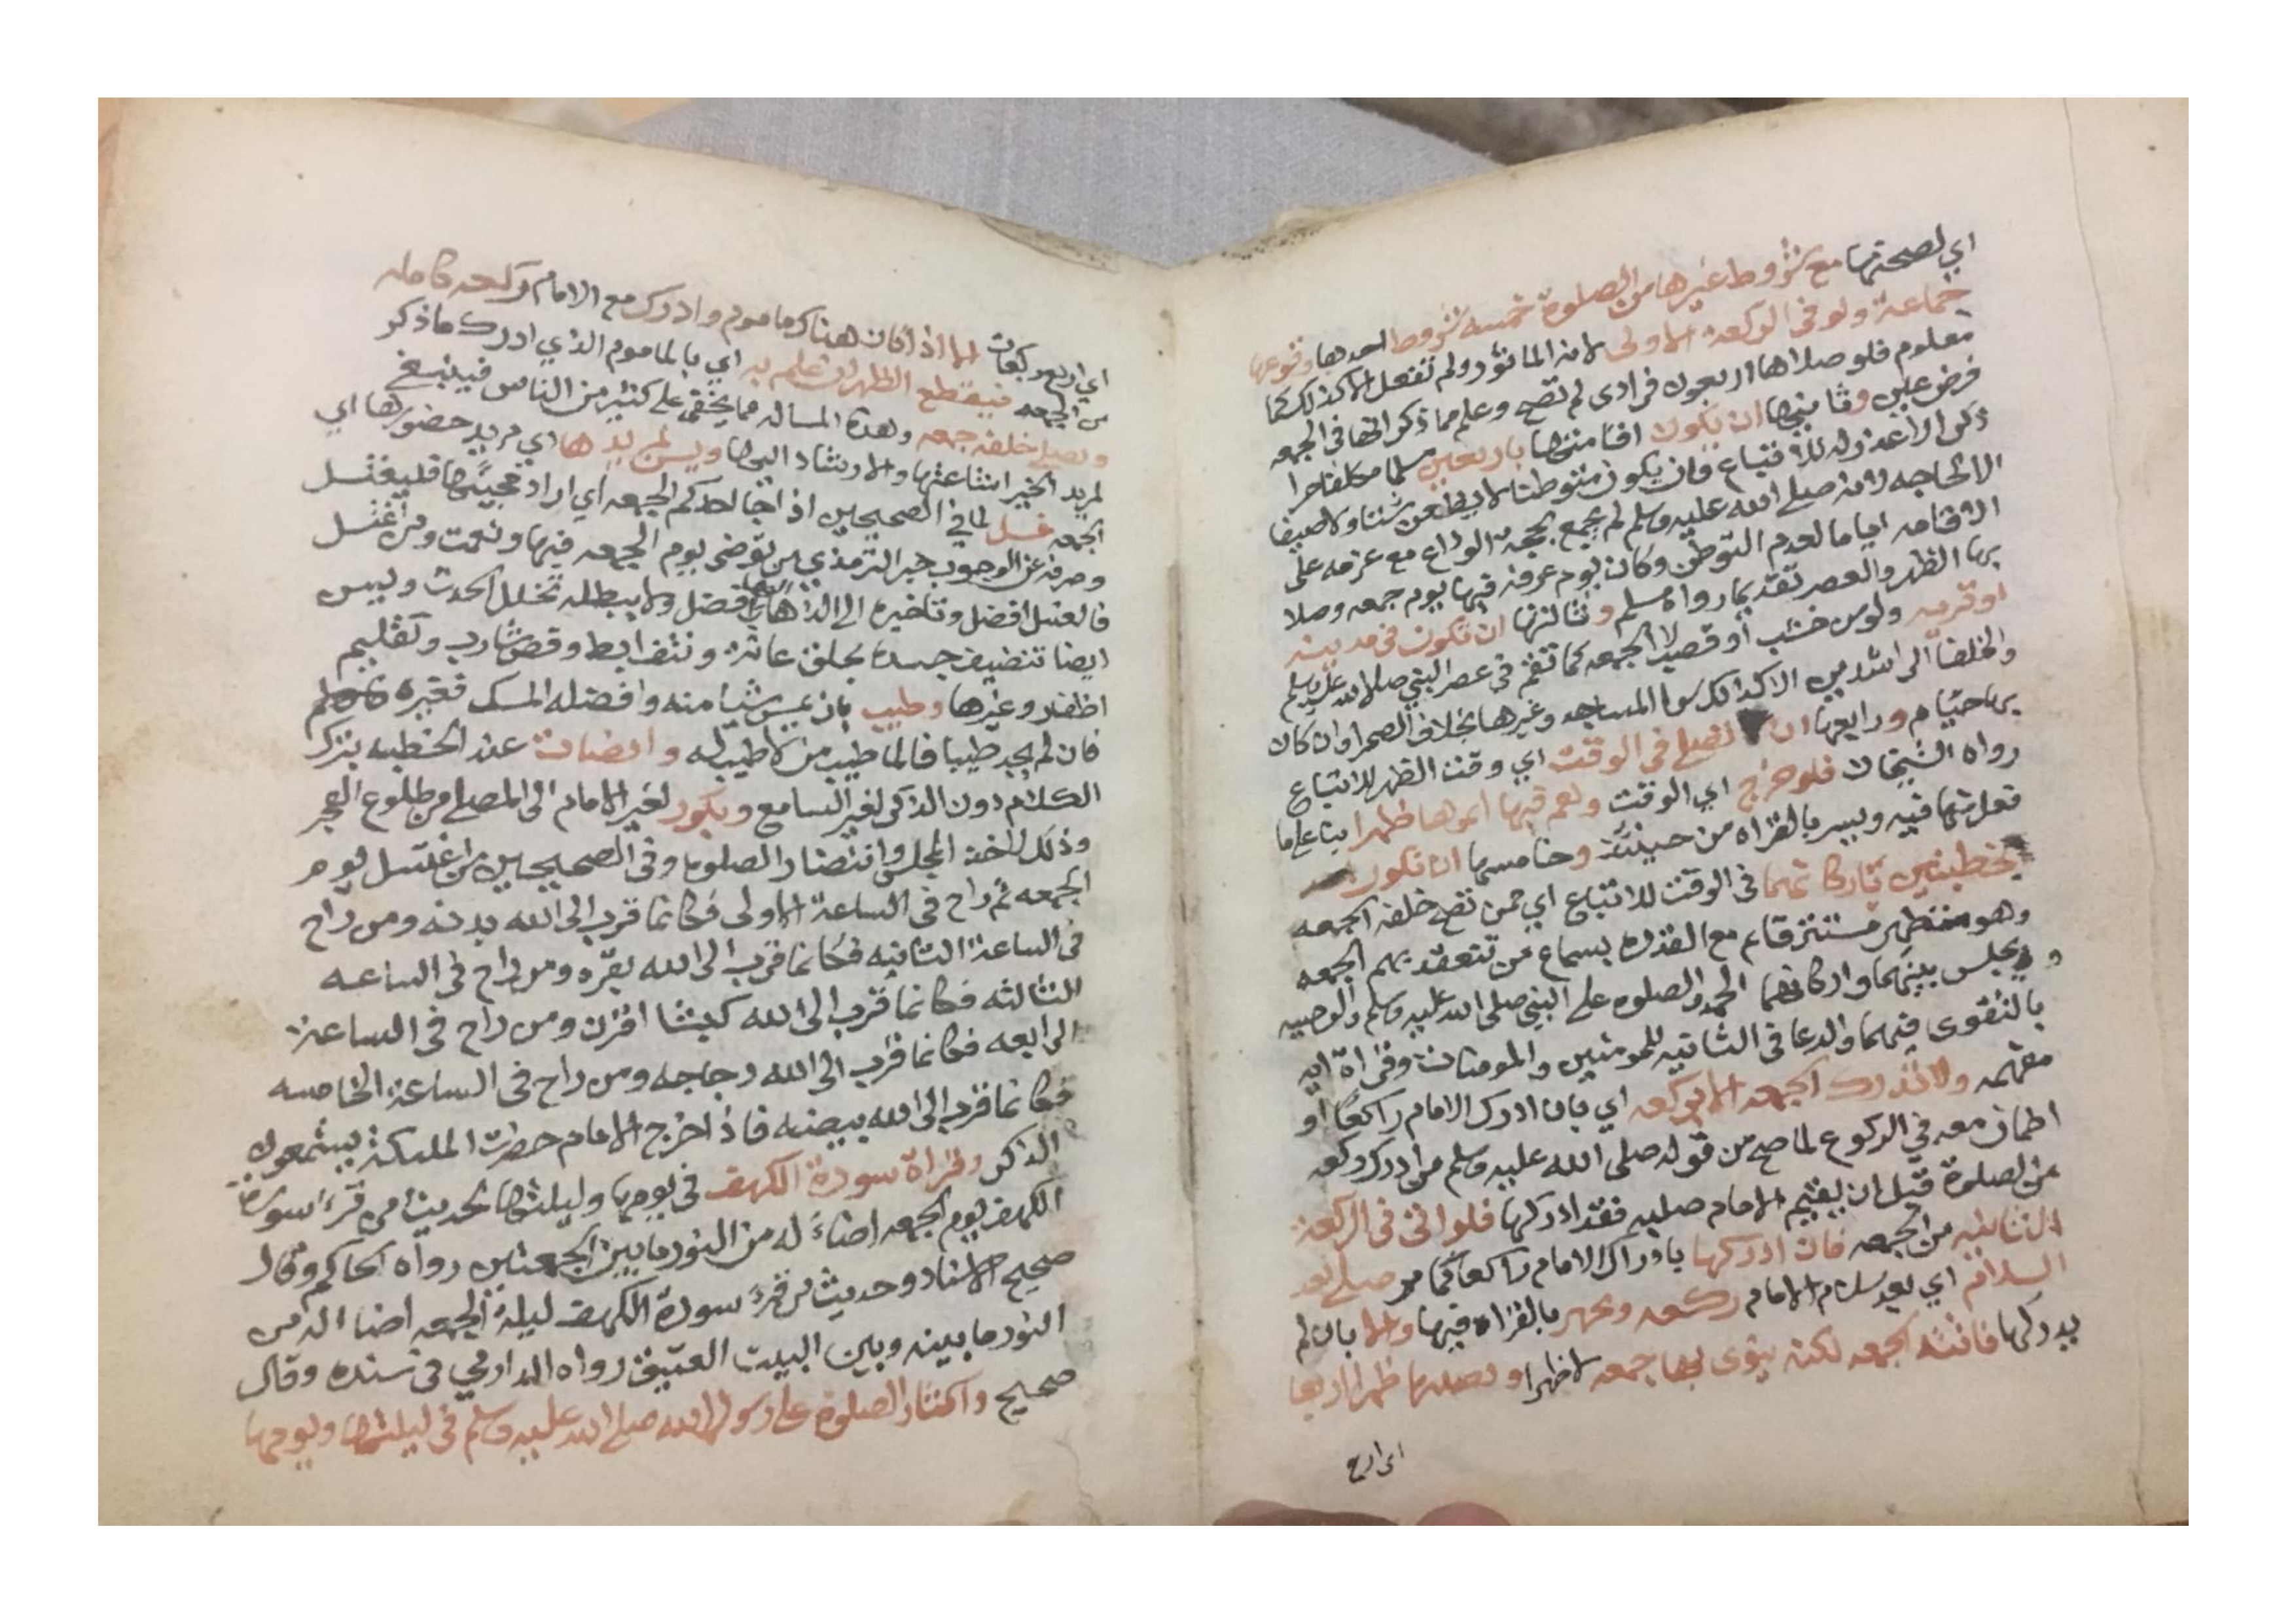 اي لصحتها مع شروط غيرها من الصلوة خمسه شروط احدها وقوعها
جماعة ولو في الركعة الاولى لانه الماثور ولم تفعل الا كذلك كما
معلوم فلو صلاها اربعون فرادى لم تصح وعلم مما ذكر انها في الجمعه
فرض عين وثانيها ان يكون اقامتها باربعين مسلما مكلفا حرا
ذكر الاعذ وله للاتباع فان يكون متوطنا لا يظعن شتا ولا صيفا
الا لحاجه لانه صلى الله عليه وسلم لم يجمع بحجة الوداع مع عزمه على
الاقامه اياما لعدم التوطن وكان يوم عرفه فيها يوم جمعه وصلا
بها الظهر والعصر تقديما رواه مسلم وثالثها ان تكون في مدينه
او قريه ولو من خشب او قصب لا الجمعه كما تقم في عصر النبي صلى الله عليه وسلم
والخلفا الراشدين الا كذلك سوا المساجد وغيرها بخلاف الصحرا وان كان
بها خيام ورابعها ان تصلى في الوقت اي وقت الظهر للاتباع
رواه الشيخان فلو خرج اي الوقت وهم فيها اتموها ظهرا بنا على ما
فعل منها فيه ويسر بالقراه من حينئذ وخامسها ان تكون بعد
خطبتين تداركاتهما في الوقت للاتباع اي ممن تصح خلفه الجمعه
وهو متطهر مستتر قايم مع القدره بسماع من تنعقد بهم الجمعه
و يجلس بينهما واركانهما الحمد والصلوه على النبي صلى الله عليه وسلم والوصيه
بالتقوى فيهما والدعا في الثانيه للمومنين والمومنات وقراة ايه
مفهمه ولا تدرك الجمعه الا بركعه اي بان ادرك الامام راكعا او
اطمان معه في الركوع لما صح من قوله صلى الله عليه وسلم من ادرك ركعه
من الصلوة قبل ان يقيم الامام صلبه فقد ادركها فلو اتى في الركعة
الثانيه من الجمعه فان ادركها بادراك الامام راكعا كما مر صلى بعد
السلام اي بعد سلام الامام ركعه ويجهر بالقراه فيها والا بان لم
يدركها فاتته الجمعه لكنه ينوى بها جمعه لا ظهرا و يصليها ظهرا اربعا
اى اربع
اي اربع ركعات اما اذا كان هناك ماموم وادرك مع الامام ركعه كامله
من الجمعه فيقطع الظهر ان علم به اي بالماموم الذي ادرك ما ذكر
ويصلي خلفه جمعه وهذه المساله مما يخفى على كثير من الناس فينبغي
لمريد الخير اشاعتها والارشاد اليها ويسن لمريدها اي مريد حضورها اي
الجمعه غسل لما في الصحيحين اذا جا احدكم الجمعه اي اراد مجيئها فليغتسل
وصرفه عن الوجوب خبر الترمذي من توضى يوم الجمعه فبها ونعمت ومن اغتسل
فالغسل افضل وتاخيره الى الذهاب اليها افضل ولا يبطله تخلل الحدث وليس
ايضا تنضيف جسده بحلق عانة ونتف ابط وقص شارب وتقليم
اظفار وغيرها وطيب بان يمس شيا منه وافضله المسك فغيره
فان لم يجد طيبا فالما طيب من لا طيب له وانصات عند الخطبه بترك
الكلام دون الذكر لغير السامع وبكور لغير الامام الى المصلى من طلوع الفجر
وذلك لاخذ المجلس وانتضار الصلوه وفي الصحيحين من اغتسل يوم
الجمعه ثم راح في الساعة الاولى فكانما قرب الى الله بدنه ومن راح
في الساعة الثانيه فكانما قرب الى الله بقره ومن راح في الساعه
الثالثه فكانما قرب الى الله كبشا اقرن ومن راح في الساعة
الرابعه فكانما قرب الى الله دجاجه ومن راح في الساعة الخامسه
فكانما قرب الى الله بيضه فاذا خرج الامام حضرت المليكة يستمعون
الذكر وقراة سورة الكهف في يومها وليلتها لحديث من قرء سورة
الكهف يوم الجمعه اضاء له من النور ما بين الجمعتين رواه الحاكم وقال
صحيح الاسناد وحديث من قرء سورة الكهف ليلة الجمعه اضا له من
النور ما بينه وبين البيت العتيق رواه الدارمي في سنده وقال
صحيح واكثار الصلوة على رسول الله صلى الله عليه وسلم في ليلتها ويومها